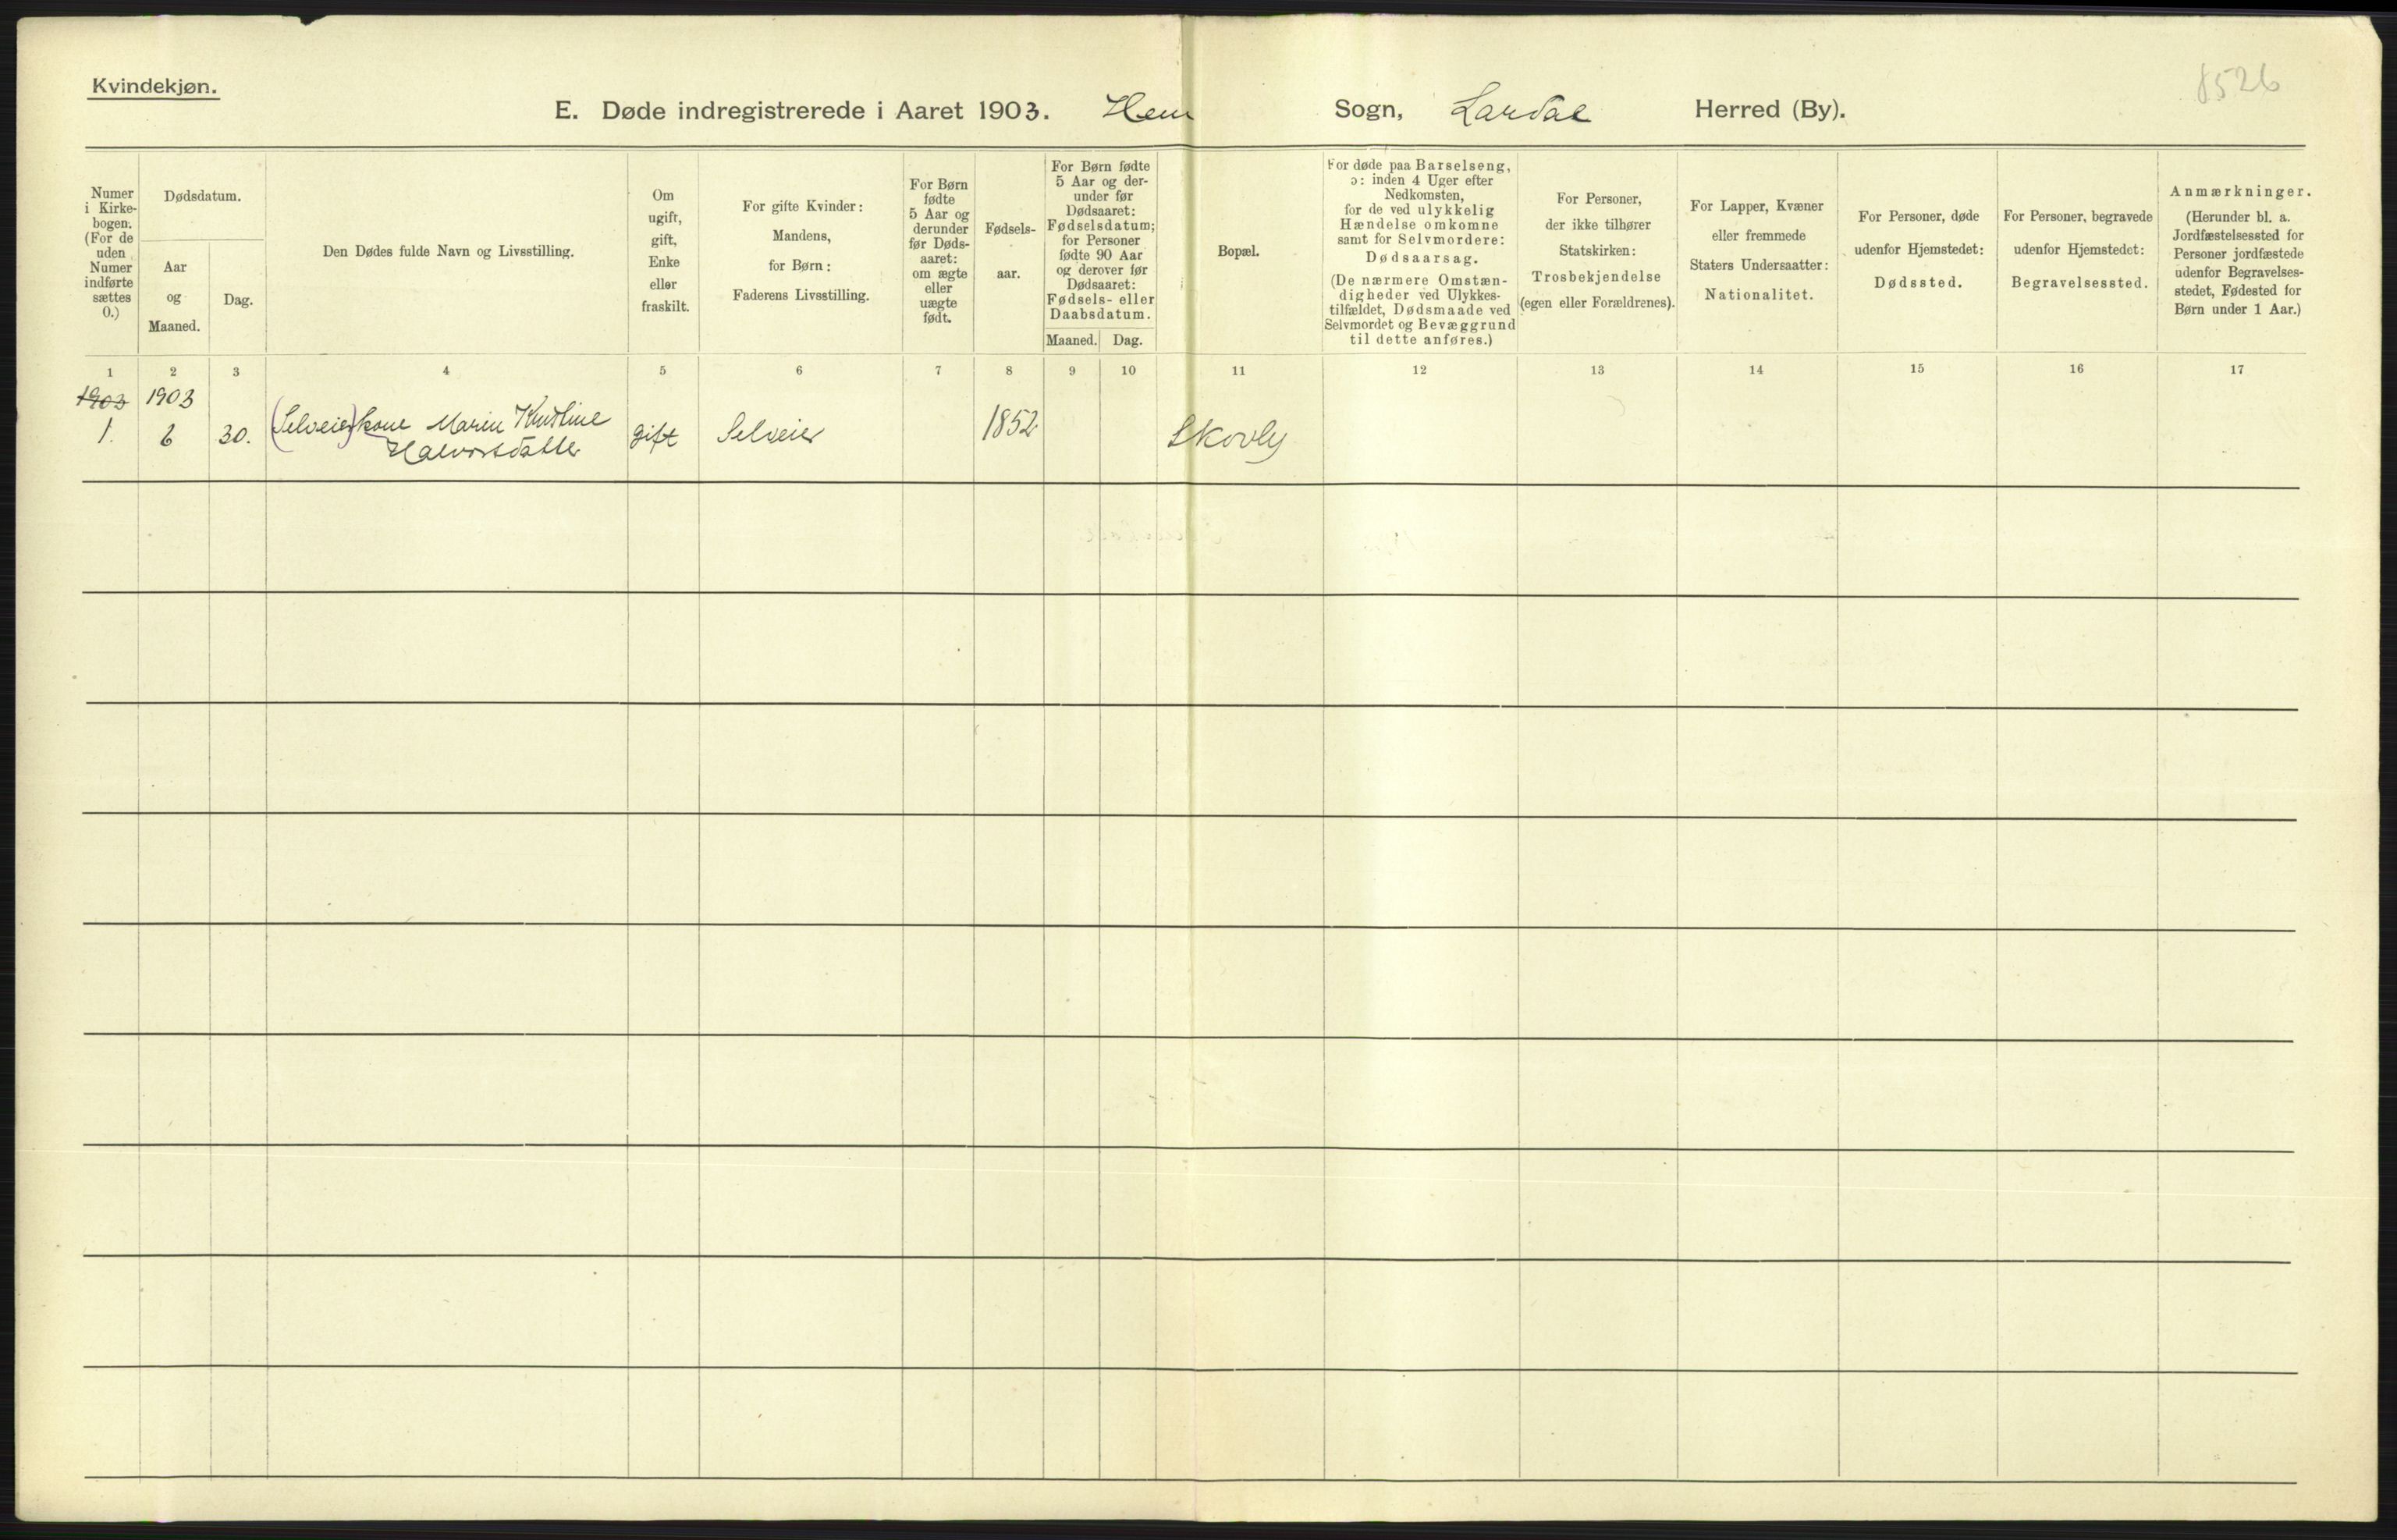 8526
Kvindekjøn.
E. Døde indregistrerede i Aaret 1903. Hem Sogn, Lardal Herred (By).
Numer
i Kirke-
bogen.
(For de
uden
Numer
indførte
sættes
0.)
Dødsdatum.
Aar
og
Maaned.
Dag.
Den Dødes fulde Navn og Livsstilling.
Om
ugift,
gift,
Enke
eller
fraskilt.
For gifte Kvinder:
Mandens,
for Børn:
Faderens Livsstilling.
For Børn
fødte
5 Aar og
derunder
før Døds-
aaret:
om ægte
eller
uægte
født.
Fødsels-
aar.
For Børn fødte
5 Aar og der-
under før
Dødsaaret:
Fødselsdatum;
for Personer
fødte 90 Aar
og derover før
Dødsaaret:
Fødsels- eller
Daabsdatum.
Maaned. Dag.
Bopæl.
For døde paa Barselseng,
ɔ: inden 4 Uger efter
Nedkomsten,
for de ved ulykkelig
Hændelse omkomne
samt for Selvmordere:
Dødsaarsag.
(De nærmere Omstæn-
digheder ved Ulykkes-
tilfældet, Dødsmaade ved
Selvmordet og Bevæggrund
til dette anføres.)
For Personer,
der ikke tilhører
Statskirken:
Trosbekjendelse
(egen eller Forældrenes).
For Lapper, Kvæner
eller fremmede
Staters Undersaatter:
Nationalitet.
For Personer, døde
udenfor Hjemstedet:
Dødssted.
For Personer, begravede
udenfor Hjemstedet:
Begravelsessted.
Anmærkninger.
(Herunder bl. a.
Jordfæstelsessted for
Personer jordfæstede
udenfor Begravelses-
stedet, Fødested for
Børn under 1 Aar.)
1 2 3 4 5 6 7 8 9 10 11 12 13 14 15 16 17
1903 1903
1. 6 30. (Selveier)kone Maren Kristine gift Selveier 1852 Skovly
Halvorsdatter